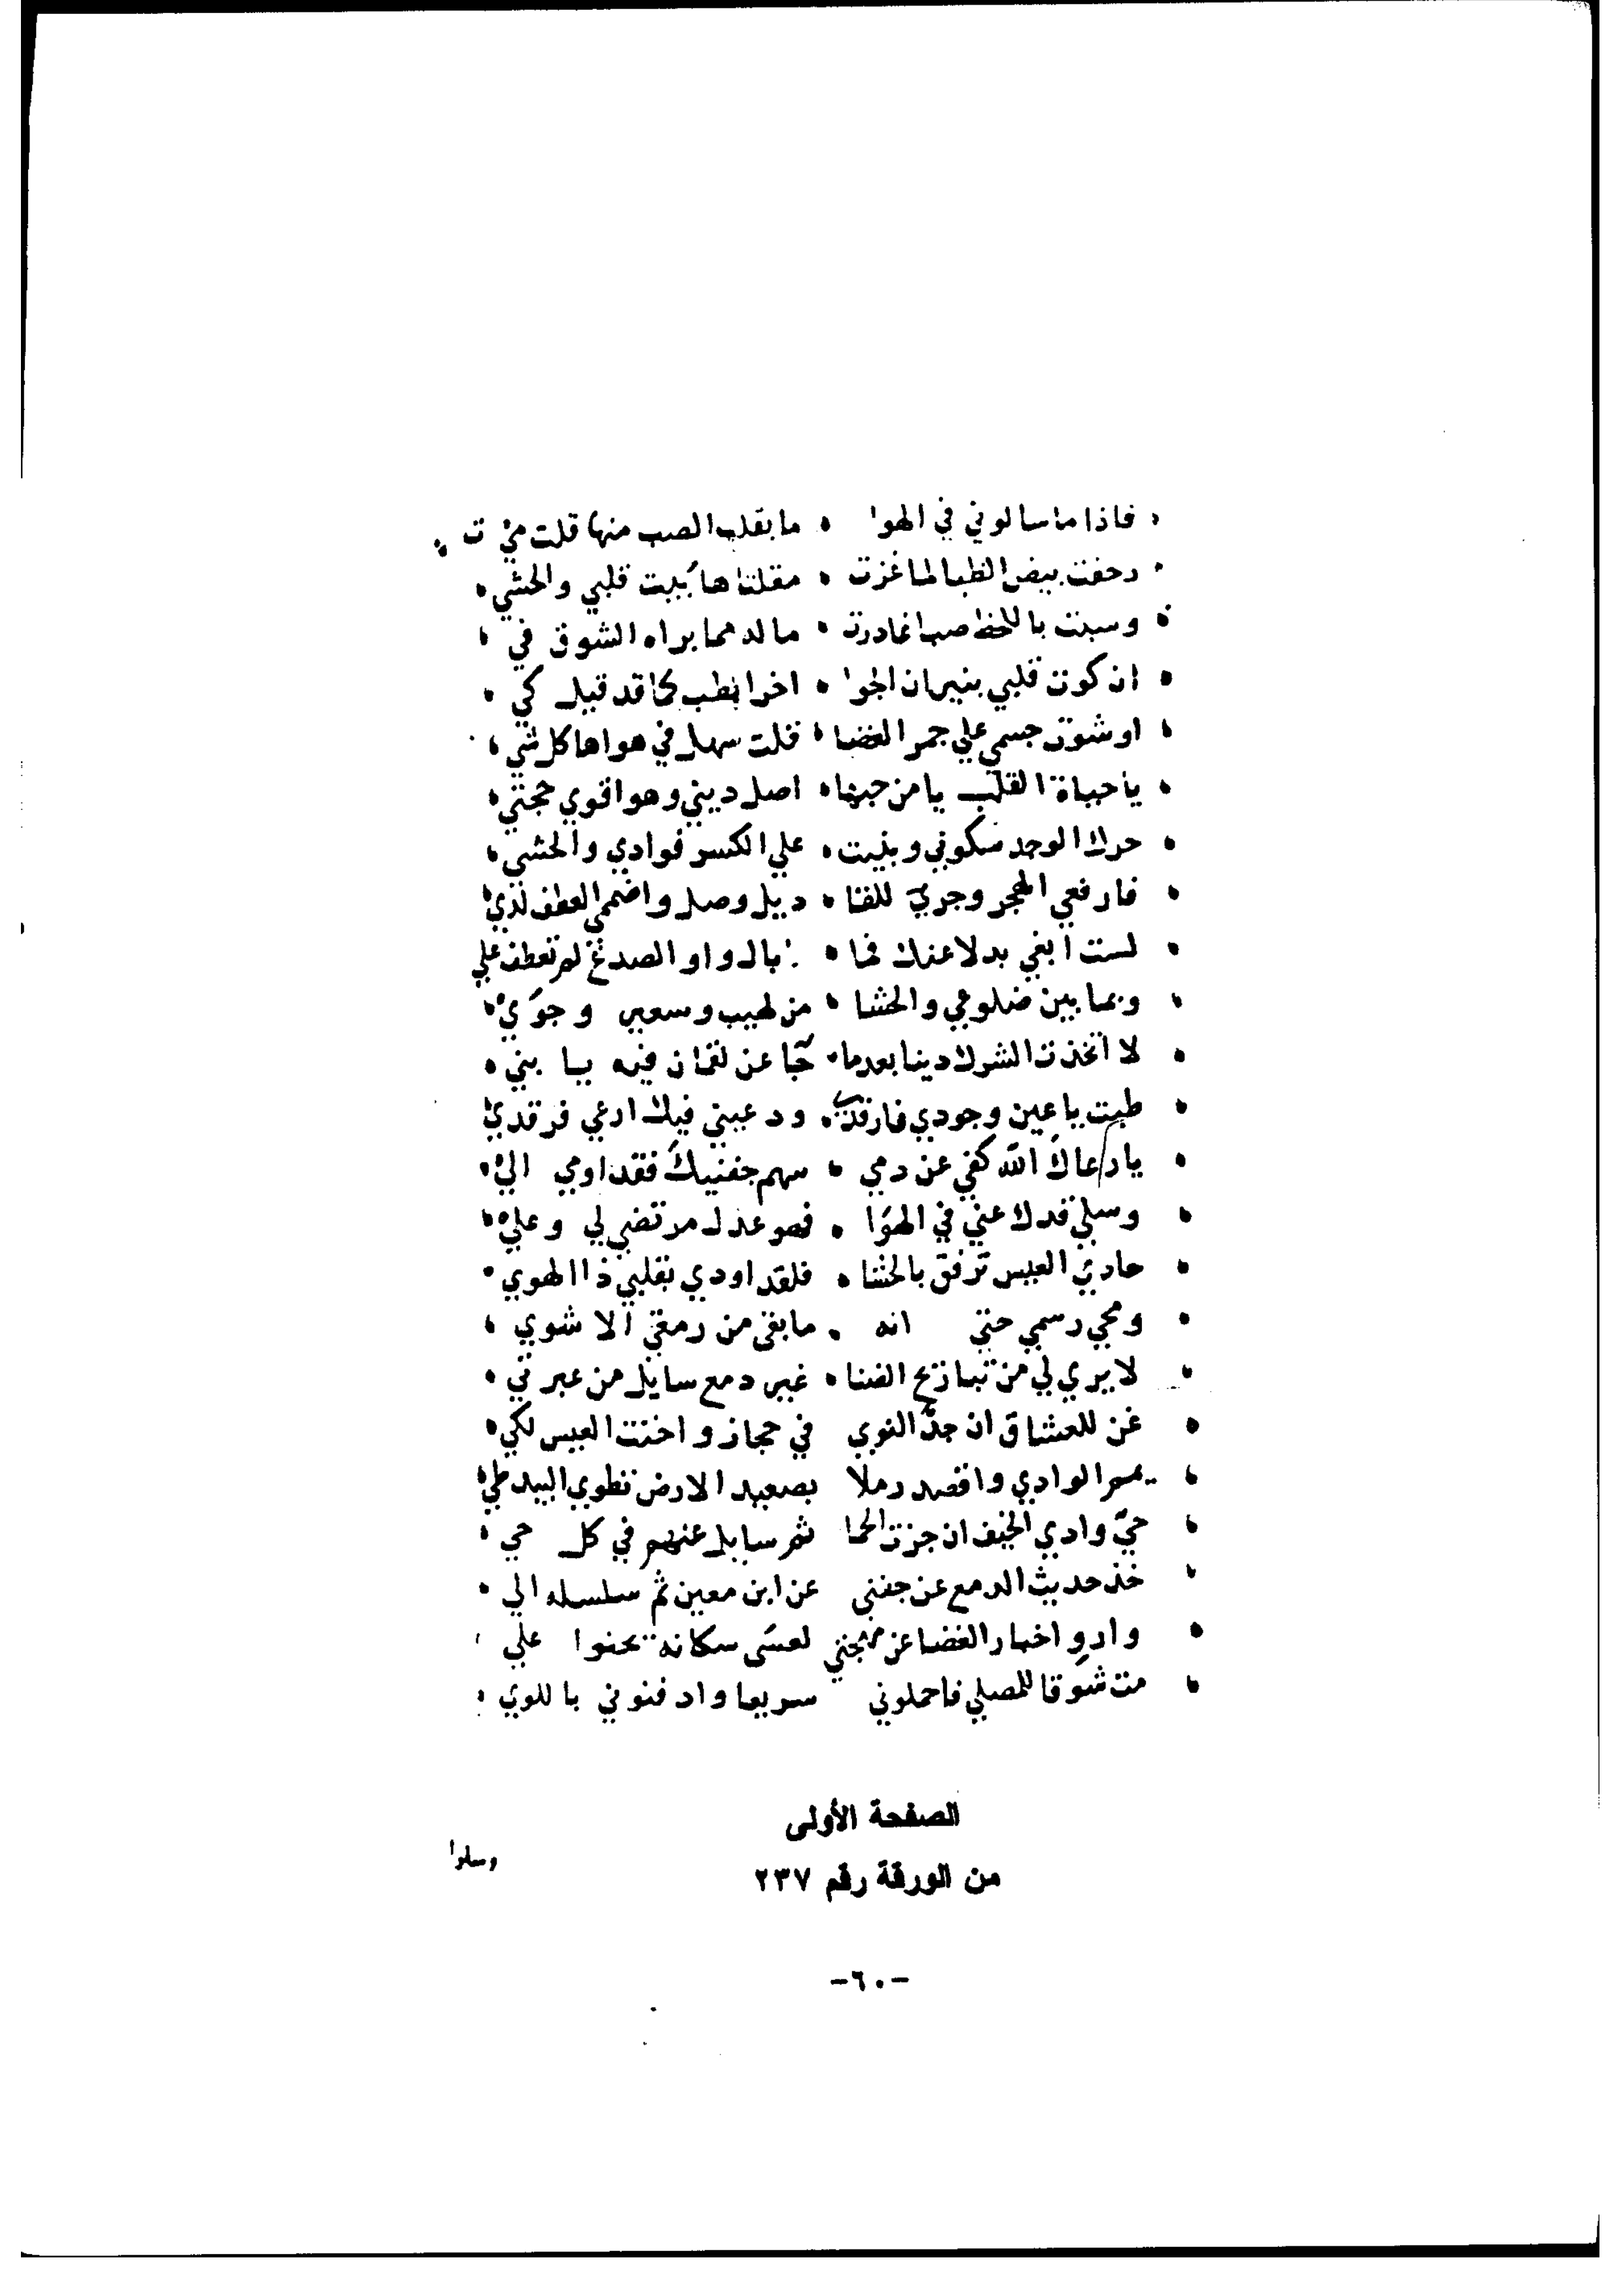 فاذا ما سالوني في الهوا ما بقلب الصب منها قلت مي ت
رحفت بيض الظبا لما غزت مقلتاها بيت قلبي والحشي
وسبت باللحظ صبا غادرت ماله مما براه الشوق في
ان كوت قلبي بنيران الجوا اخر الطب كما قد قيل كي
او شوت جسمي علي جمر الغضا قلت سهل في هواها كل شي
يا حياة القلب يا من حبها اصل ديني وهو اقوي حجتي
حرك الوجد سكوني وبنيت علي الكسر فوادي والحشي
فارفعي الهجر وجري للقا ديل وصل واضممي العطف لدي
لست ابغي بدلا عنك فما بال واو الصدغ لم تعطف علي
وبما بين ضلوعي والحشا من لهيب وسعير وجوي
لا اتخذت الشرك دينا بعدما جا عن لقمان فيه يا بني
طبت يا عين وجودي فارقدي ودعيني فيك ارعي فرقدي
يا رعاك الله كفي عن دمي سهم جفنيك فقد اومي الي
وسلي قدك عني في الهوا فهو عدل مرتضي لي وعلي
حادي العيس ترفق بالحشا فلقد اودي بقلبي ذا الهوي
ومحي رسمي حتي انه ما بقي من رمقي الا شوي
لا يري لي من تباريح الضنا غير دمع سايل من عبرتي
غن للعشاق ان جد النوي في حجاز واخنت العيس لكي
يمم الوادي واقصد رملا بصعيد الارض تطوي البيد طي
حي وادي الخيف ان جزت الحما ثم سايل عنهم في كل حي
خذ حديث الدمع عن جفني عن ابن معين ثم سلسله الي
وارو اخبار الغضا عن مهجتي لعسي سكانه يحنوا علي
مت شوقا للمصلي فاحملوني سريعا وادفنوني باللوي
الصفحة الأولى
وسلوا
من الورقة رقم ٢٣٧
-٦٠-